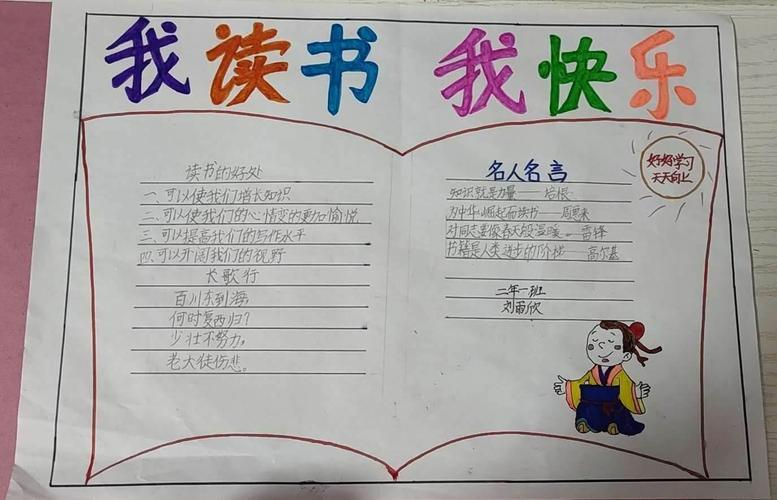 我读书 我快乐
读书的好处
一、可以使我们增长知识
二、可以使我们的心情变的更加愉悦
三、可以提高我们的写作水平
四、可以开阔我们的视野
长歌行
百川东到海,
何时复西归?
少壮不努力,
老大徒伤悲。
名人名言
知识就是力量——培根
为中华崛起而读书——周恩来
对同志要像春天般温暖。——雷锋
书籍是人类进步的阶梯——高尔基
二年一班
刘雨欣
好好学习
天天向上